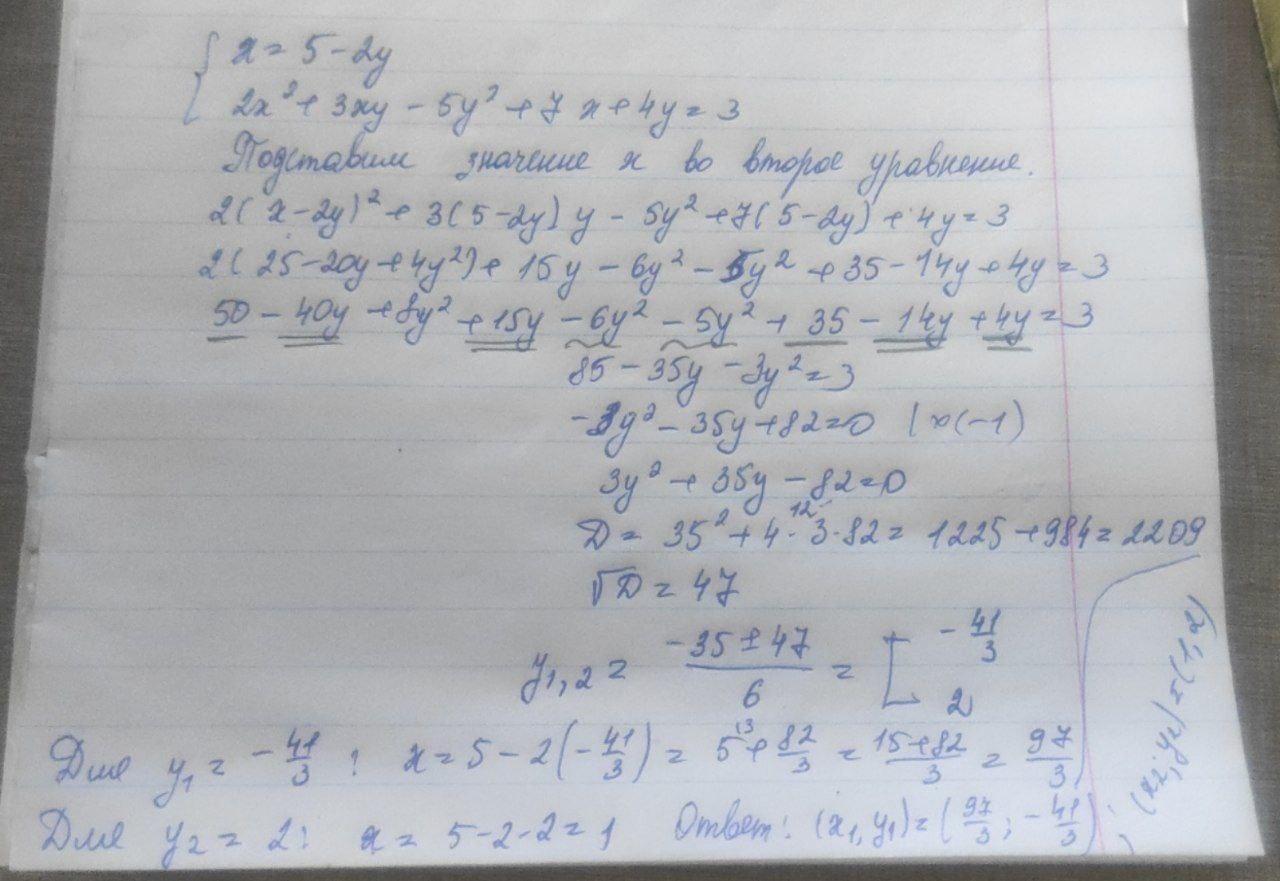 { x = 5 - 2y
2x² + 3xy - 5y² + 7x + 4y = 3
Подставим значение x во второе уравнение.
2(x-2y)² + 3(5-2y)y - 5y² + 7(5-2y) + 4y = 3
2(25-20y+4y²) + 15y - 6y² - 5y² + 35 - 14y + 4y = 3
50 - 40y + 8y² + 15y - 6y² - 5y² + 35 - 14y + 4y = 3
85 - 35y - 3y² = 3
-3y² - 35y + 82 = 0 | x(-1)
3y² + 35y - 82 = 0
D = 35² + 4 · 3 · 82 = 1225 + 984 = 2209
12
√D = 47
y₁,₂ = (-35 ± 47)/6 = [ -41/3
2
Для y₁ = -41/3 : x = 5 - 2(-41/3) = 5 + 82/3 = (15+82)/3 = 97/3
Для y₂ = 2: x = 5-2·2 = 1 Ответ: (x₁, y₁) = (97/3 ; -41/3) ;
(x₂; y₂) = (1, 2)